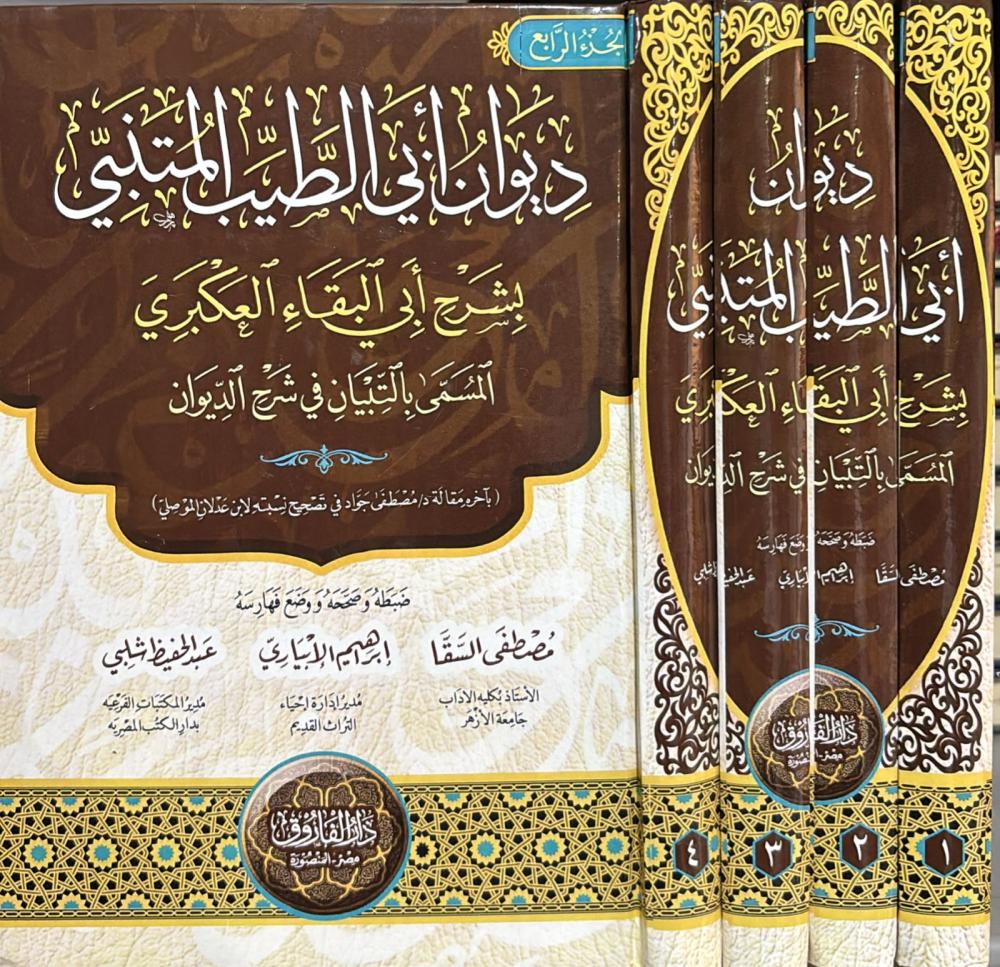 الجزء الرابع
ديوان أبي الطيب المتنبي
بشرح أبي البقاء العكبري
المسمى بالتبيان في شرح الديوان
(بآخره مقالة د/ مصطفى جواد في تصحيح نسبته لابن عدلان الموصلي)
ضبطه وصححه ووضع فهارسه
مصطفى السقا
الأستاذ بكليه الآداب
جامعة الأزهر
إبراهيم الإبياري
مدير إدارة إحياء
التراث القديم
عبد الحفيظ شلبي
مدير المكتبات الفرعيه
بدار الكتب المصريه
دار الفاروق
مصر - المنصورة
ديوان
أبي الطيب المتنبي
بشرح أبي البقاء العكبري
المسمى بالتبيان في شرح الديوان
ضبطه وصححه ووضع فهارسه
مصطفى السقا إبراهيم الإبياري عبد الحفيظ شلبي
دار الفاروق
مصر - المنصورة
١ ٢ ٣ ٤